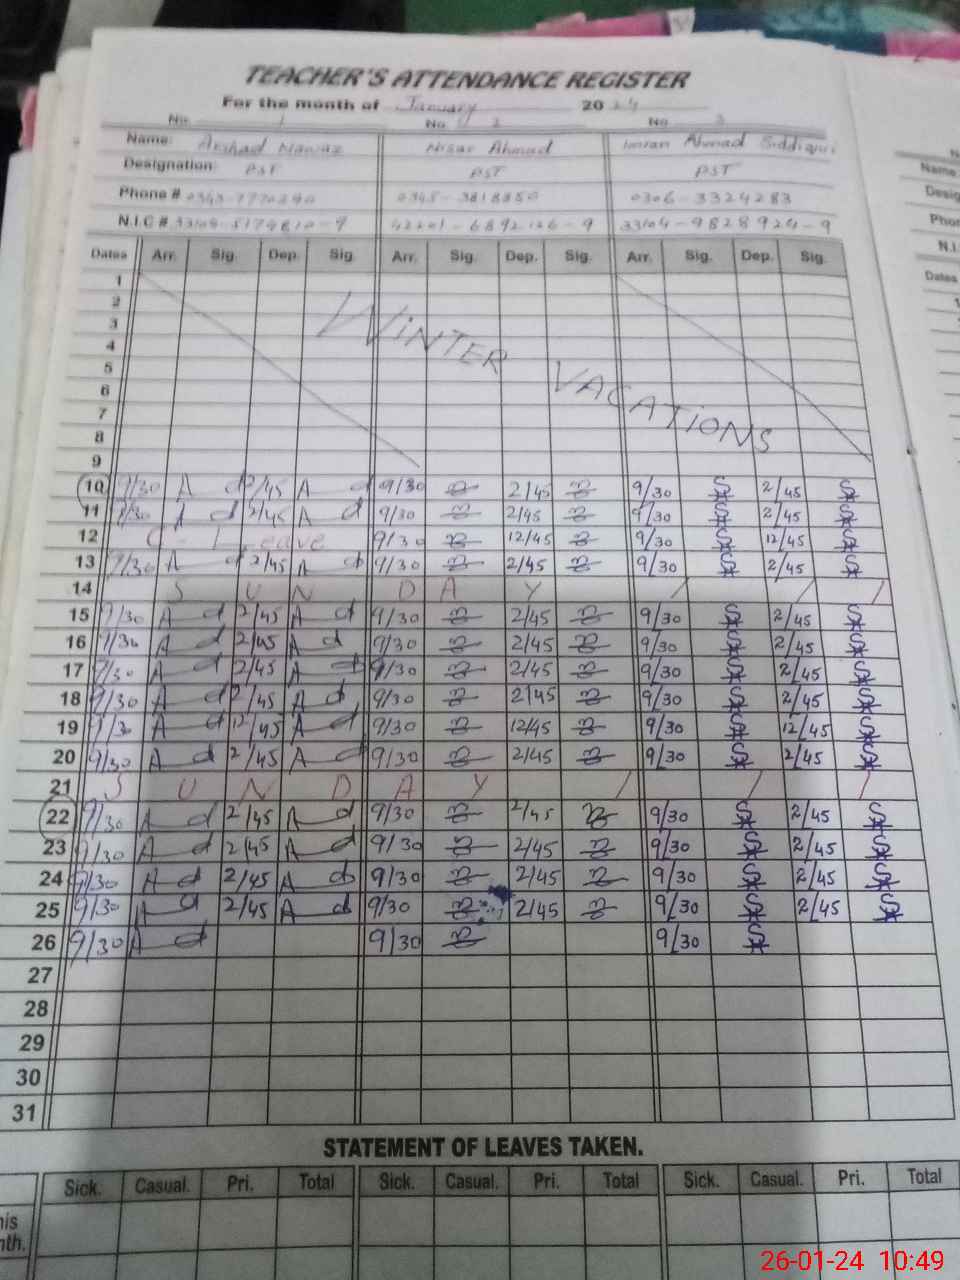 TEACHER'S ATTENDANCE REGISTER
For the month of January 2024
No 1 No 2 No 3
Name: Arshad Nawaz Nisar Ahmad Imran Ahmad Siddiqui
Designation: PST PST PST
Phone # 0345-3818850 0306-3324283
N.I.C # 42201-6892126-9 33104-9828924-9
Dates Arr. Sig. Dep. Sig. Arr. Sig. Dep. Sig. Arr. Sig. Dep. Sig.
1
2
3
4
5
6
7
8
9
WINTER VACATIONS
10 9/30 2/45 9/30 2/45 9/30 2/45
11 9/30 2/45 9/30 2/45 9/30 2/45
12 C - Leave 9/30 12/45 9/30 12/45
13 9/30 2/45 9/30 2/45 9/30 2/45
14 S U N D A Y / / /
15 9/30 2/45 9/30 2/45 9/30 2/45
16 9/30 2/45 9/30 2/45 9/30 2/45
17 9/30 2/45 9/30 2/45 9/30 2/45
18 9/30 2/45 9/30 2/45 9/30 2/45
19 9/30 12/45 9/30 12/45 9/30 12/45
20 9/30 2/45 9/30 2/45 9/30 2/45
21 S U N D A Y / / /
22 9/30 2/45 9/30 2/45 9/30 2/45
23 9/30 2/45 9/30 2/45 9/30 2/45
24 9/30 2/45 9/30 2/45 9/30 2/45
25 9/30 2/45 9/30 2/45 9/30 2/45
26 9/30 9/30 9/30
27
28
29
30
31
STATEMENT OF LEAVES TAKEN.
Sick. Casual. Pri. Total Sick. Casual. Pri. Total Sick. Casual. Pri. Total
26-01-24 10:49